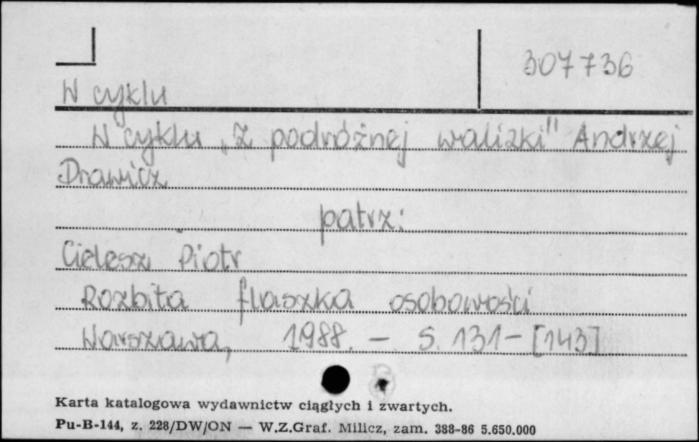 307736
W cyklu
W cyklu „Z podróżnej walizki" Andrzej
Drawicz
patrz:
Cielesz Piotr
Rozbita flaszka osobowości
Warszawa, 1988. – S. 131-[143]
Karta katalogowa wydawnictw ciągłych i zwartych.
Pu-B-144, z. 228/DW/ON — W.Z.Graf. Milicz, zam. 388-86 5.650.000